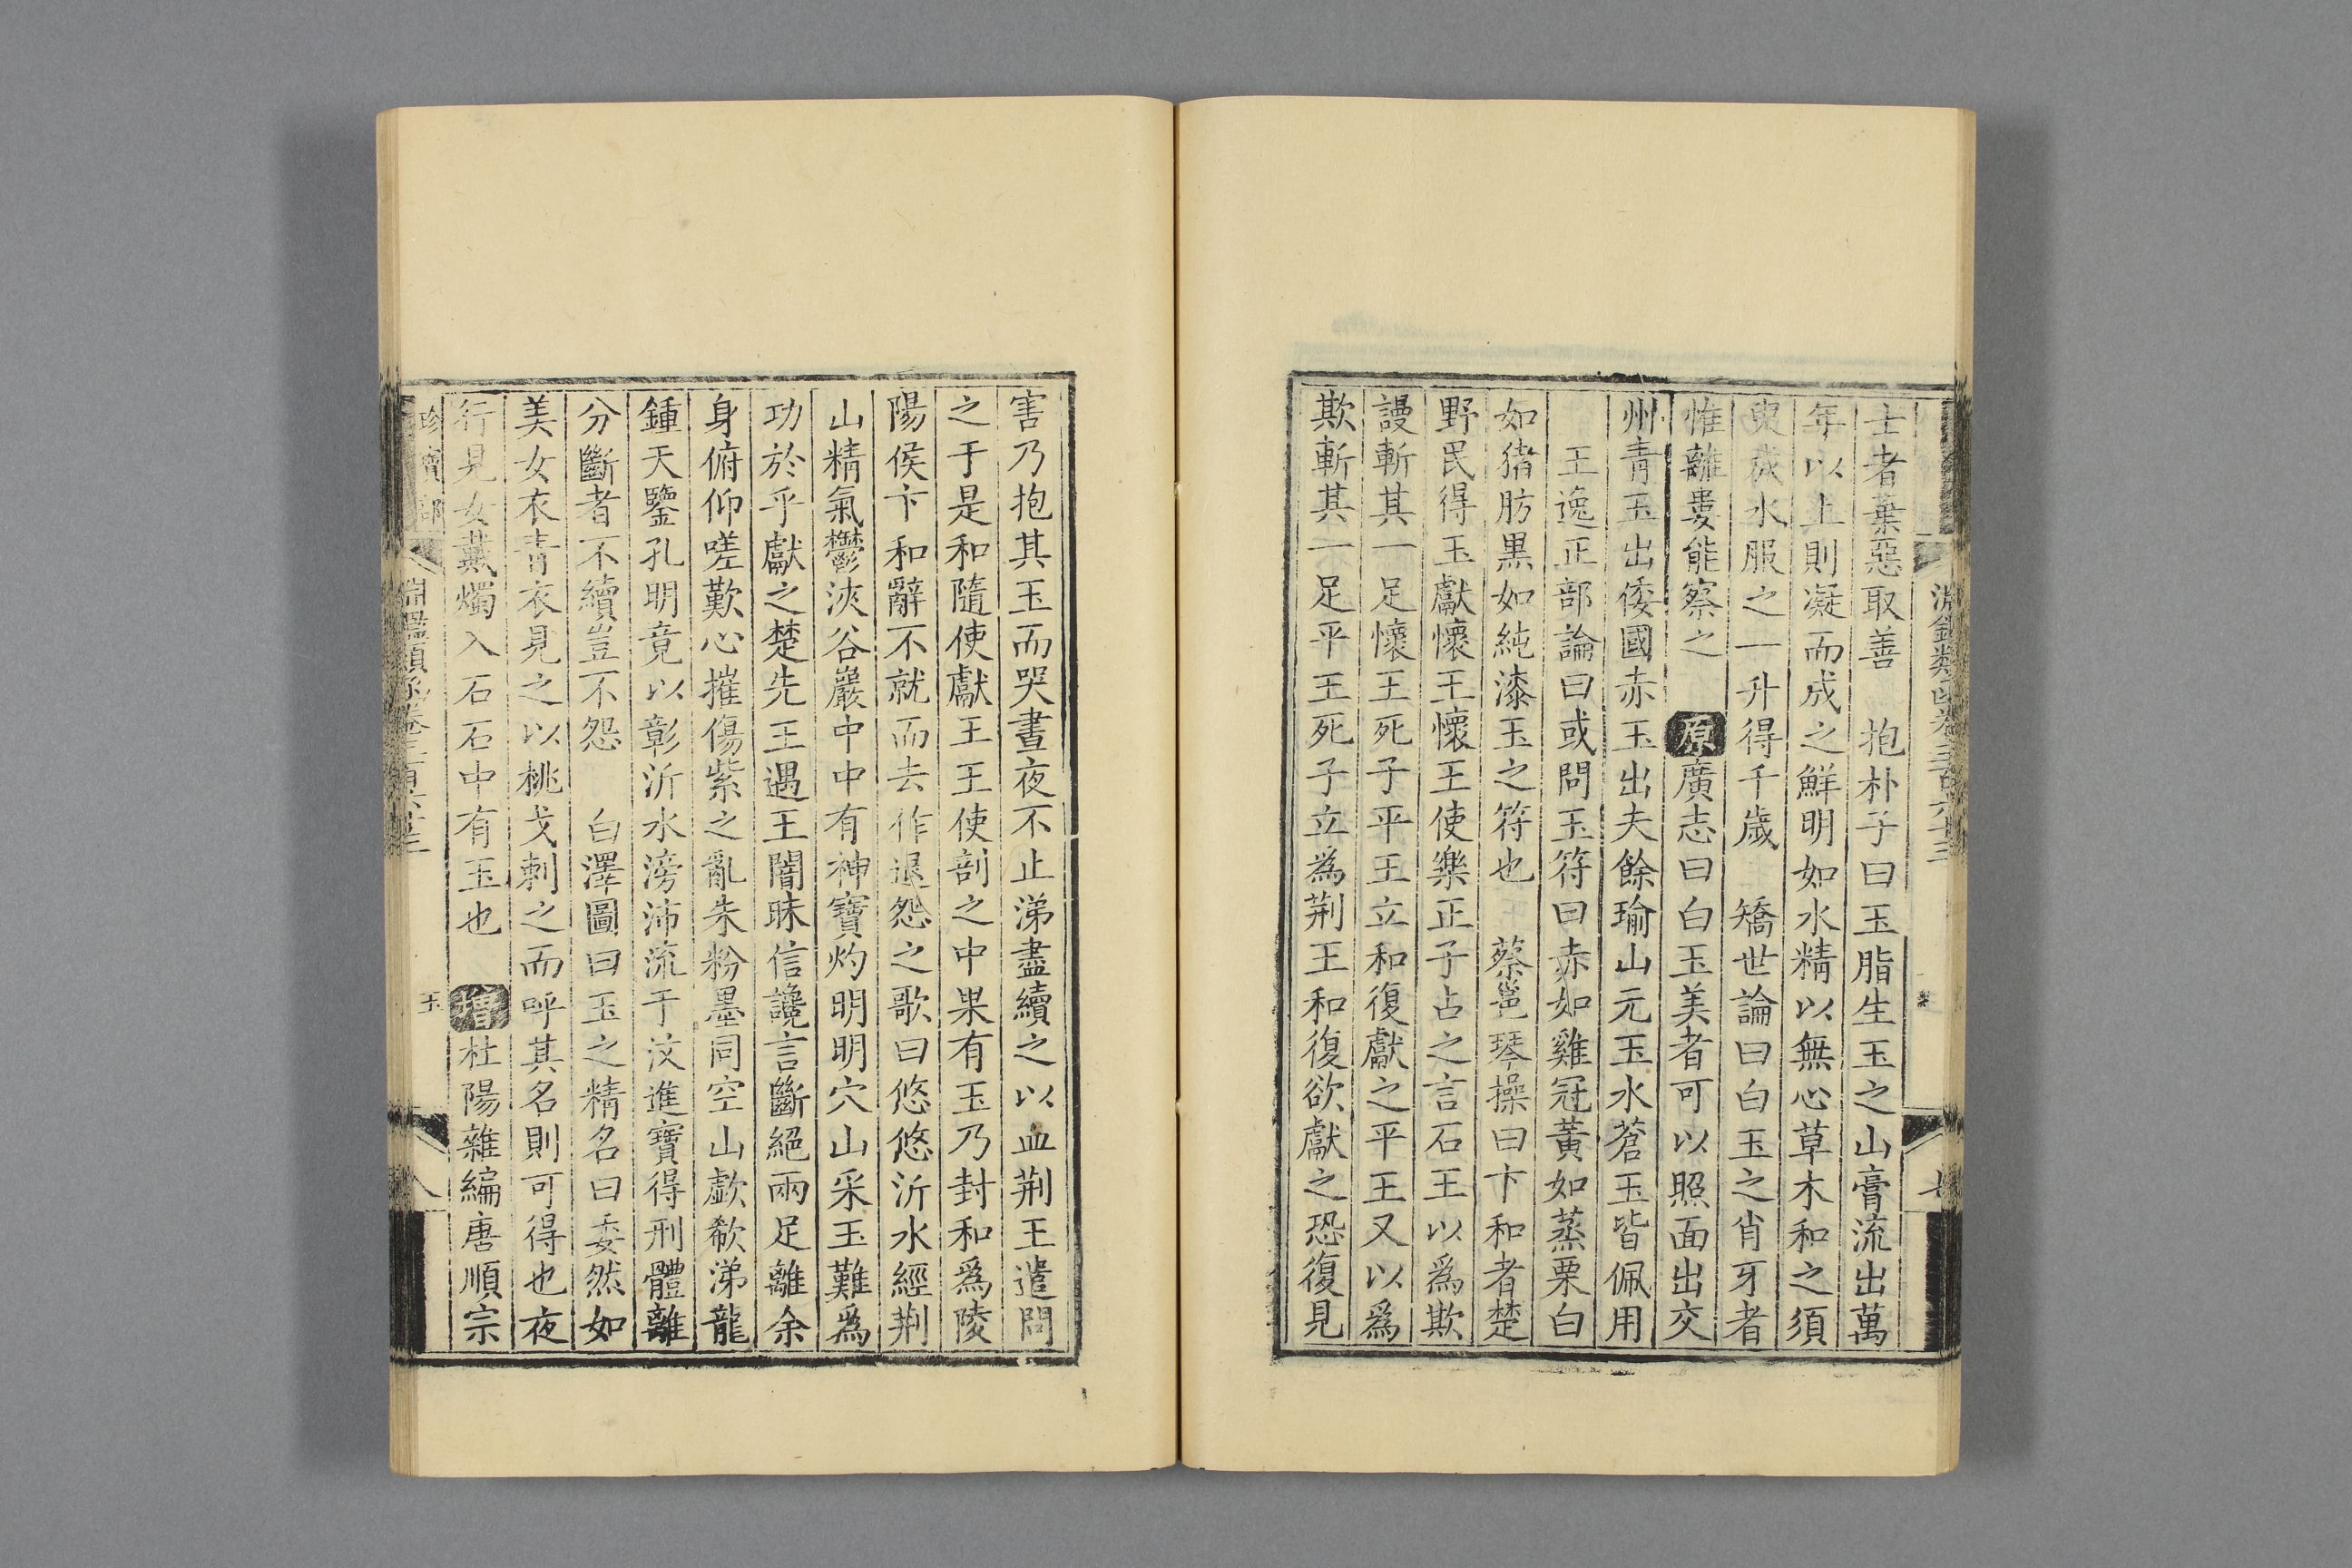 淵鑑類函卷三百六十三
七
士者棄惡取善 抱朴子曰玉脂生玉之山膏流出萬
年以上則凝而成之鮮明如水精以無心草木和之須
臾成水服之一升得千歲 矯世論曰白玉之肖牙者
惟離婁能察之 原廣志曰白玉美者可以照面出交
州青玉出倭國赤玉出夫餘瑜山元玉水蒼玉皆佩用
王逸正部論曰或問玉符曰赤如雞冠黃如蒸栗白
如猪肪黑如純漆玉之符也 蔡邕琴操曰卞和者楚
野民得玉獻懷王懷王使樂正子占之言石王以爲欺
謾斬其一足懷王死子平王立和復獻之平王又以爲
欺斬其一足平王死子立爲荆王和復欲獻之恐復見
害乃抱其玉而哭晝夜不止涕盡續之以血荆王遣問
之于是和隨使獻王王使剖之中果有玉乃封和爲陵
陽侯卞和辭不就而去作退怨之歌曰悠悠沂水經荆
山精氣鬱浹谷巖中中有神寶灼明明穴山采玉難爲
功於乎獻之楚先王遇王闇昧信讒言斷絕兩足離余
身俯仰嗟歎心摧傷紫之亂朱粉墨同空山歔欷涕龍
鍾天鑒孔明竟以彰沂水滂沛流于汶進寶得刑體離
分斷者不續豈不怨 白澤圖曰玉之精名曰委然如
美女衣青衣見之以桃戈刺之而呼其名則可得也夜
行見女戴燭入石石中有玉也 增杜陽雜編唐順宗
珍寶部 玉
淵鑑類函卷三百六十三
八